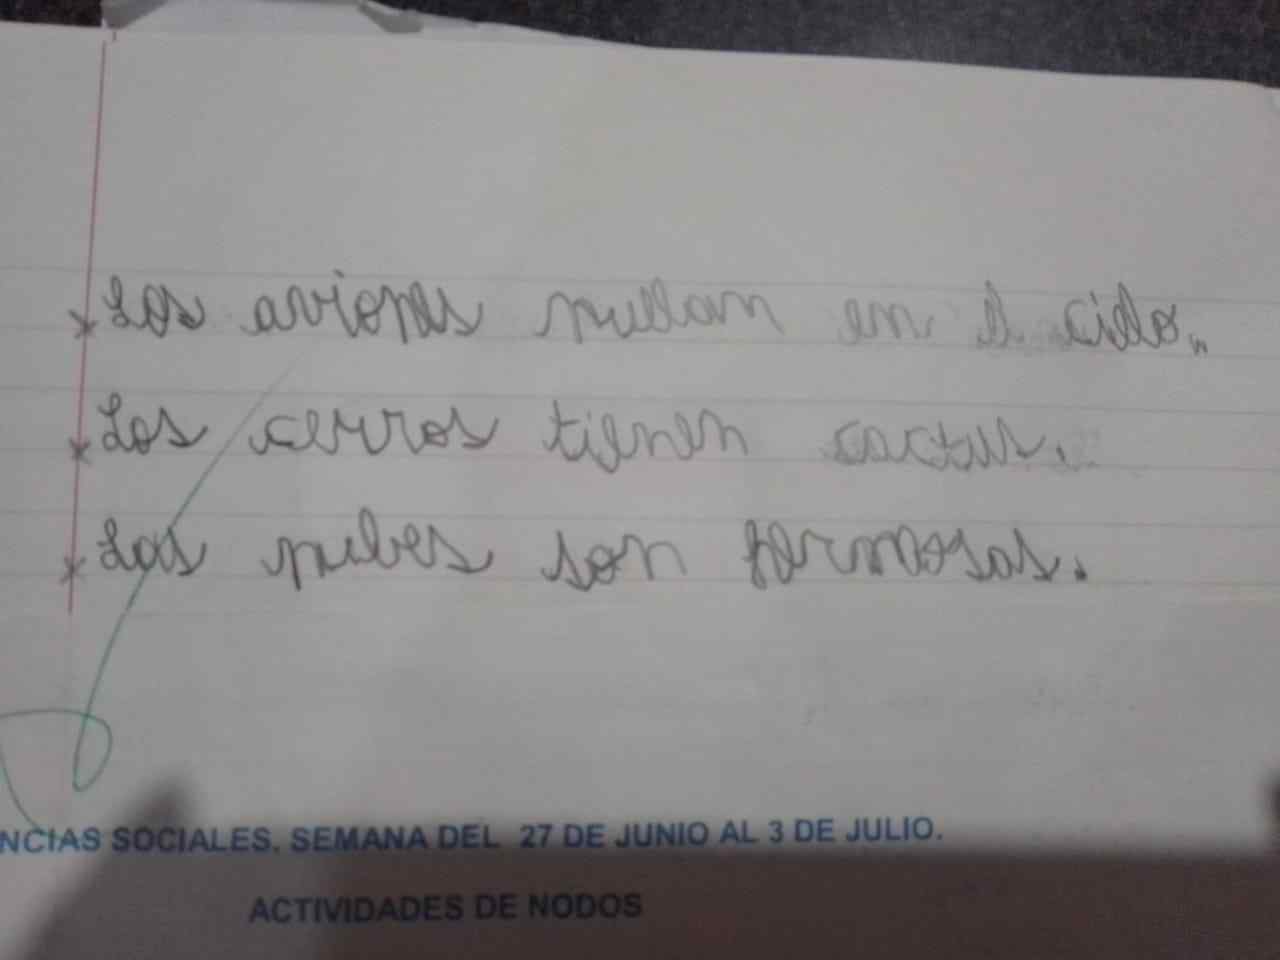 Los aviones nuelan en el cielo.
Los cerros tienen cactus.
Las nubes son fermosas.
NCIAS SOCIALES. SEMANA DEL 27 DE JUNIO AL 3 DE JULIO.
ACTIVIDADES DE NODOS